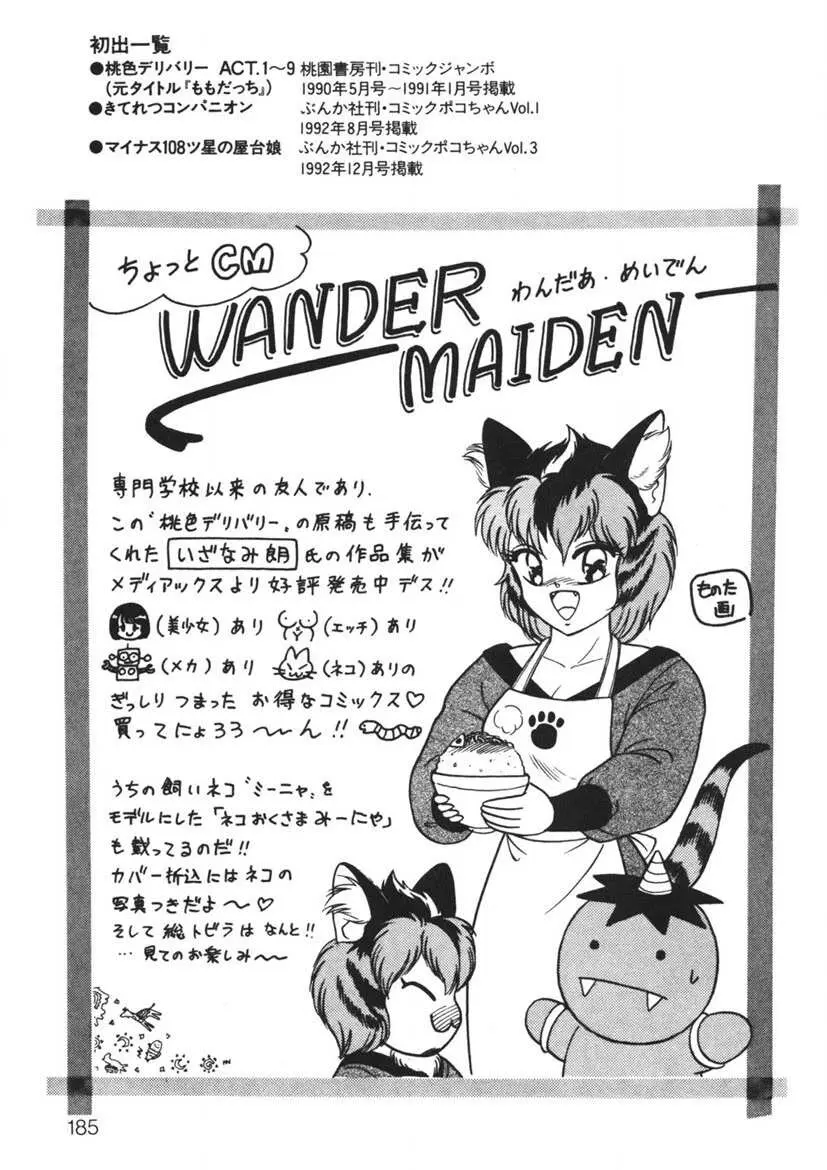 初出一覧
●桃色デリバリー ACT.1〜9 桃園書房刊・コミックジャンボ
(元タイトル『ももだっち』) 1990年5月号〜1991年1月号掲載
●きてれつコンパニオン ぶんか社刊・コミックポコちゃんVol.1
1992年8月号掲載
●マイナス108ツ星の屋台娘 ぶんか社刊・コミックポコちゃんVol.3
1992年12月号掲載
ちょっと CM
WANDER
わんだあ・めいでん
MAIDEN
専門学校以来の友人であり、
この「桃色デリバリー」の原稿も手伝って
くれた いざなみ朗 氏の作品集が
メディアックスより好評発売中デス!!
(美少女)あり (エッチ)あり
(メカ)あり (ネコ)ありの
ぎっしりつまった お得なコミックス♡
買ってにょろろ〜〜ん!!
ものた
画
うちの飼いネコ「ミーニャ」を
モデルにした「ネコおくさまみーにゃ」
も載ってるのだ!!
カバー折込にはネコの
写真つきだよ〜♡
そして総トビラはなんと!!
…見てのお楽しみ〜〜
185